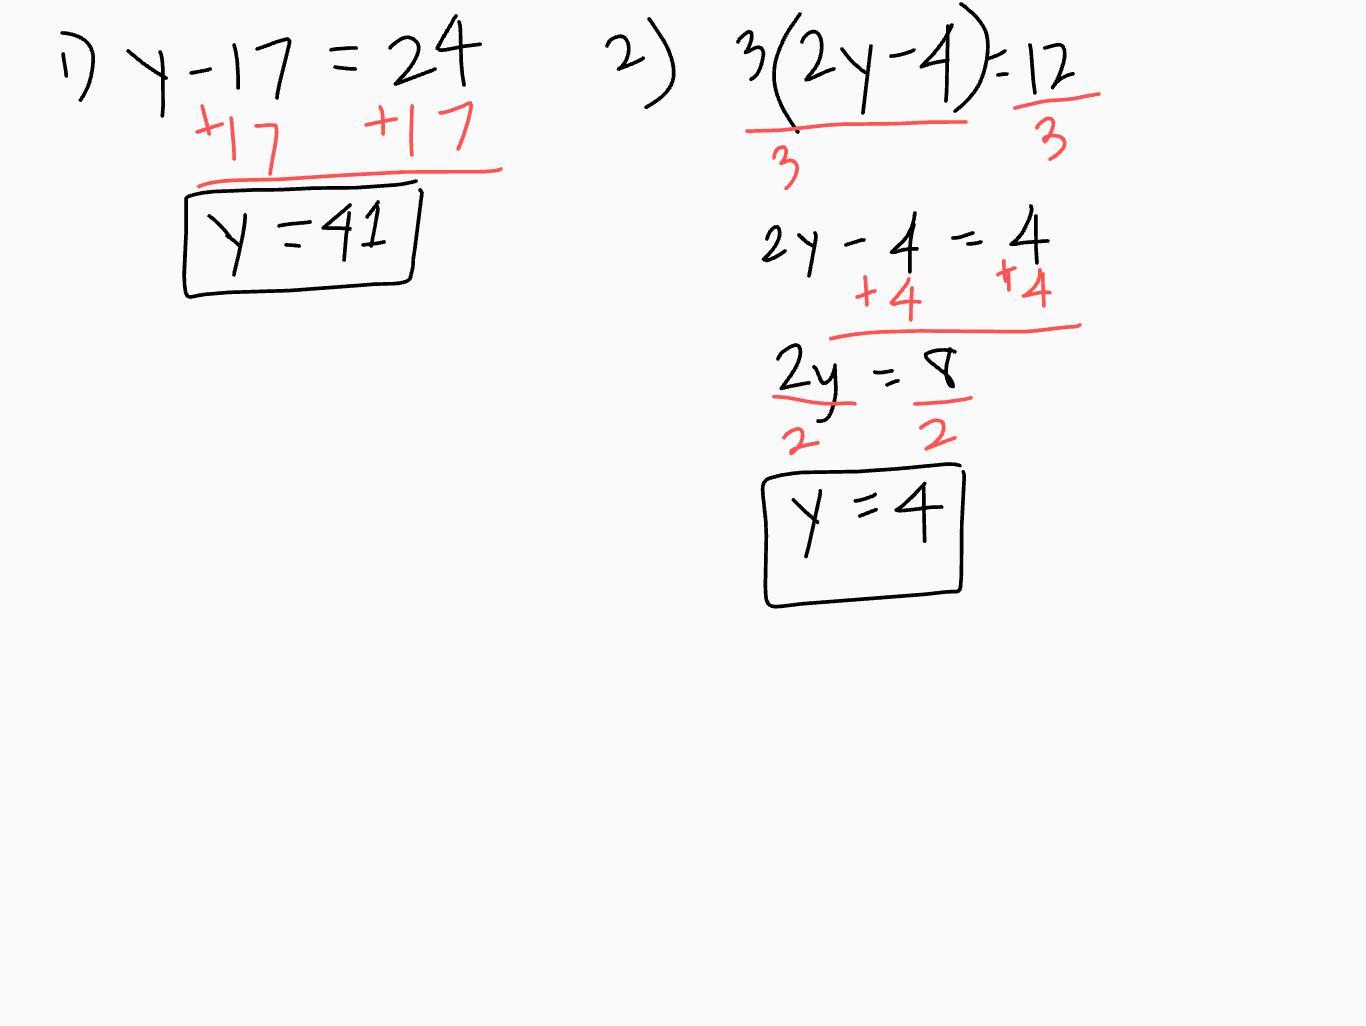 1) y - 17 = 24
+17 +17
y = 41
2) 3(2y - 4) = 12
3 3
2y - 4 = 4
+4 +4
2y = 8
2 2
y = 4